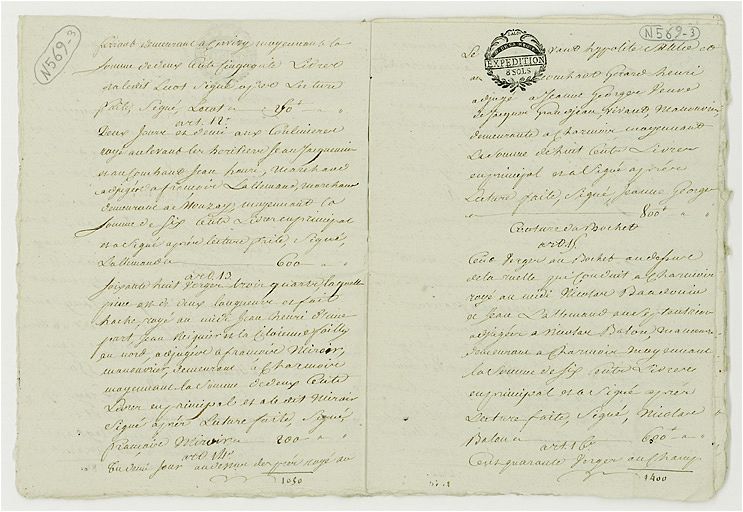 N569-3
demeurant a Civry moyennant la
somme de deux Cent Cinquante Livres
et a ledit Lecot Signé après Lecture
faite, Signé, Lecot 250
art. 12.
Deux Jours et demi aux Coulmieres
royé au levant les heritiers Jean Jacquemin
et au Couchant Jean henri, Marchand
adjugée a francois Lallemand, Marchand
demeurant a Mouzay, moyennant la
somme de Six Cents Livres en principal
et a Signé après Lecture faite, Signé,
Lallemand 600
art. 13
Soixante huit Verges trois quarts, laquelle
piece est de deux longueurs et fait
hache, royé au midi Jean henri d'une
part, Jean
au nord, adjugée a francois Miroir,
manouvrier, demeurant a Charmois
moyennant la Somme de deux Cents
Livres en principal et a ledit Miroir
Signé après Lecture faite, Signé,
françois Miroir 200
art. 14.
Un demi Jour au dessus des prés royé au
1050
N569-3
EXPEDITION
8 SOLS
Le levant hypolite
au Couchant Gerard henri
adjugé a Jeanne Georges Veuve
de Jacques Grandjean, vivant, Manouvrier,
demeurante a Charmois moyennant
La Somme de huit Cents Livres
en principal et a Signé après
Lecture faite, Signé, Jeanne George
800
Couture du Bochet
art. 15
Cent Verges au Bochet au dessus
de la ruelle qui Conduit a Charmois
royé au midi Nicolas Baudouin
et Jean Lallemand au Septentrion
adjugée a Nicolas Baton, Manouv
demeurant a Charmois moyennant
La Somme de Six Cents Livres
en principal et a Signé après
Lecture faite, Signé, Nicolas
Baton 600
art. 16
Cent quarante Verges au Champ
1400